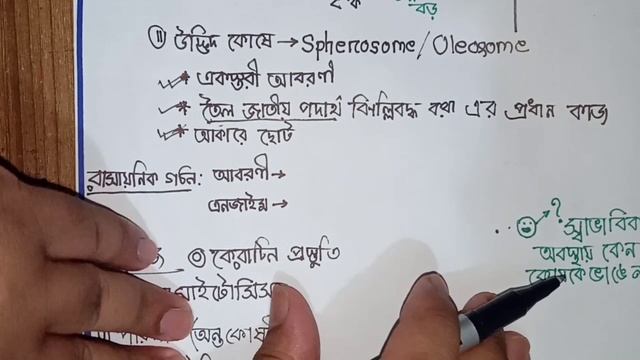 বড়
(ii) উদ্ভিদ কোষে → Spherosome/Oleosome
* একস্তরী আবরণী
* তৈল জাতীয় পদার্থ ঝিল্লিবদ্ধ করা এর প্রধান কাজ
* আকারে ছোট
রাসায়নিক গঠন: আবরণী →
এনজাইম →
কেরাটিন প্রস্তুতি
?
স্বাভাবিক
অবস্থায় কেন